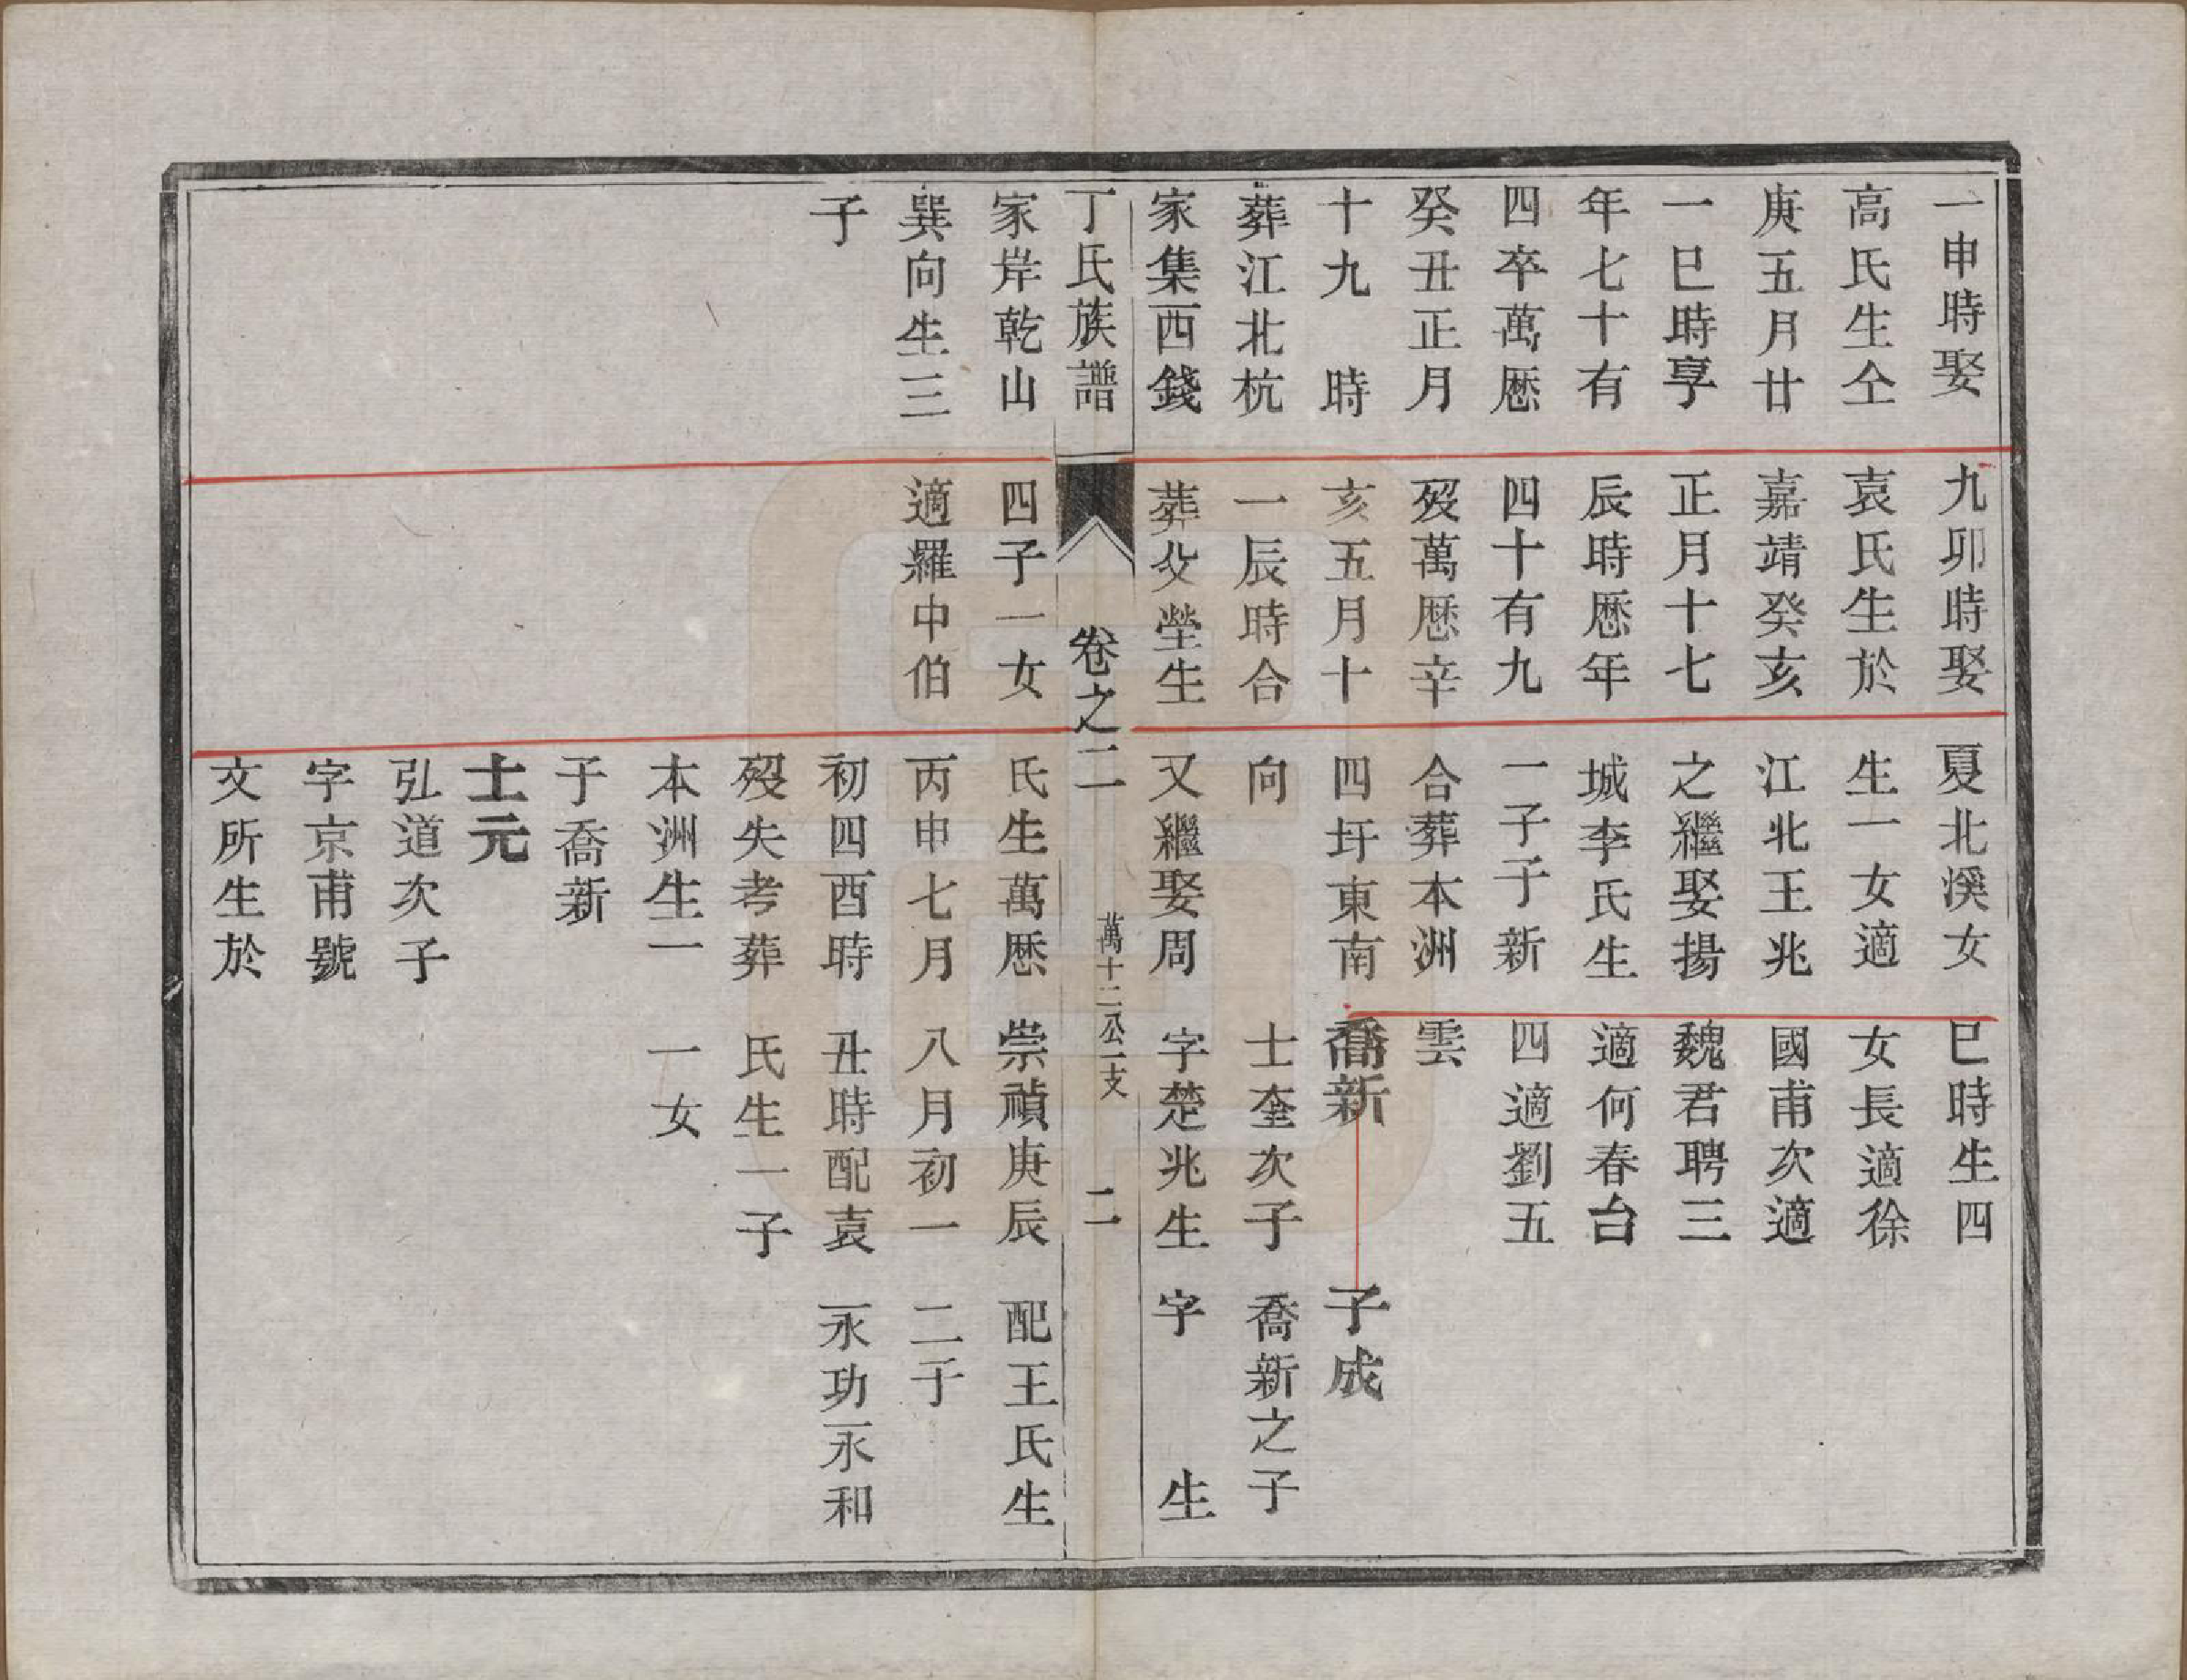 一申時娶
高氏生仝
庚五月廿
一巳時享
年七十有
四卒萬厯
癸丑正月
十九　時
葬江北杭
家集西錢
家岸乾山
巽向生三
子
九卯時娶
袁氏生於
嘉靖癸亥
正月十七
辰時厯年
四十有九
歿萬厯辛
亥五月十
一辰時合
葬父塋生
四子一女
適羅中伯
夏北溪女
生一女適
江北王兆
之繼娶揚
城李氏生
一子子新
合葬本洲
四圩東南
向
又繼娶周
氏生萬厯
丙申七月
初四酉時
歿失考葬
本洲生一
子喬新
士元
弘道次子
字京甫號
文所生於
巳時生四
女長適徐
國甫次適
魏君聘三
適何春台
四適劉五
雲
喬新
士奎次子
字楚兆生
崇禎庚辰
八月初一
丑時配袁
氏生一子
一女
子成
喬新之子
字　　生
配王氏生
二子
永功永和
丁氏族譜
卷之二
萬十二公一支
二